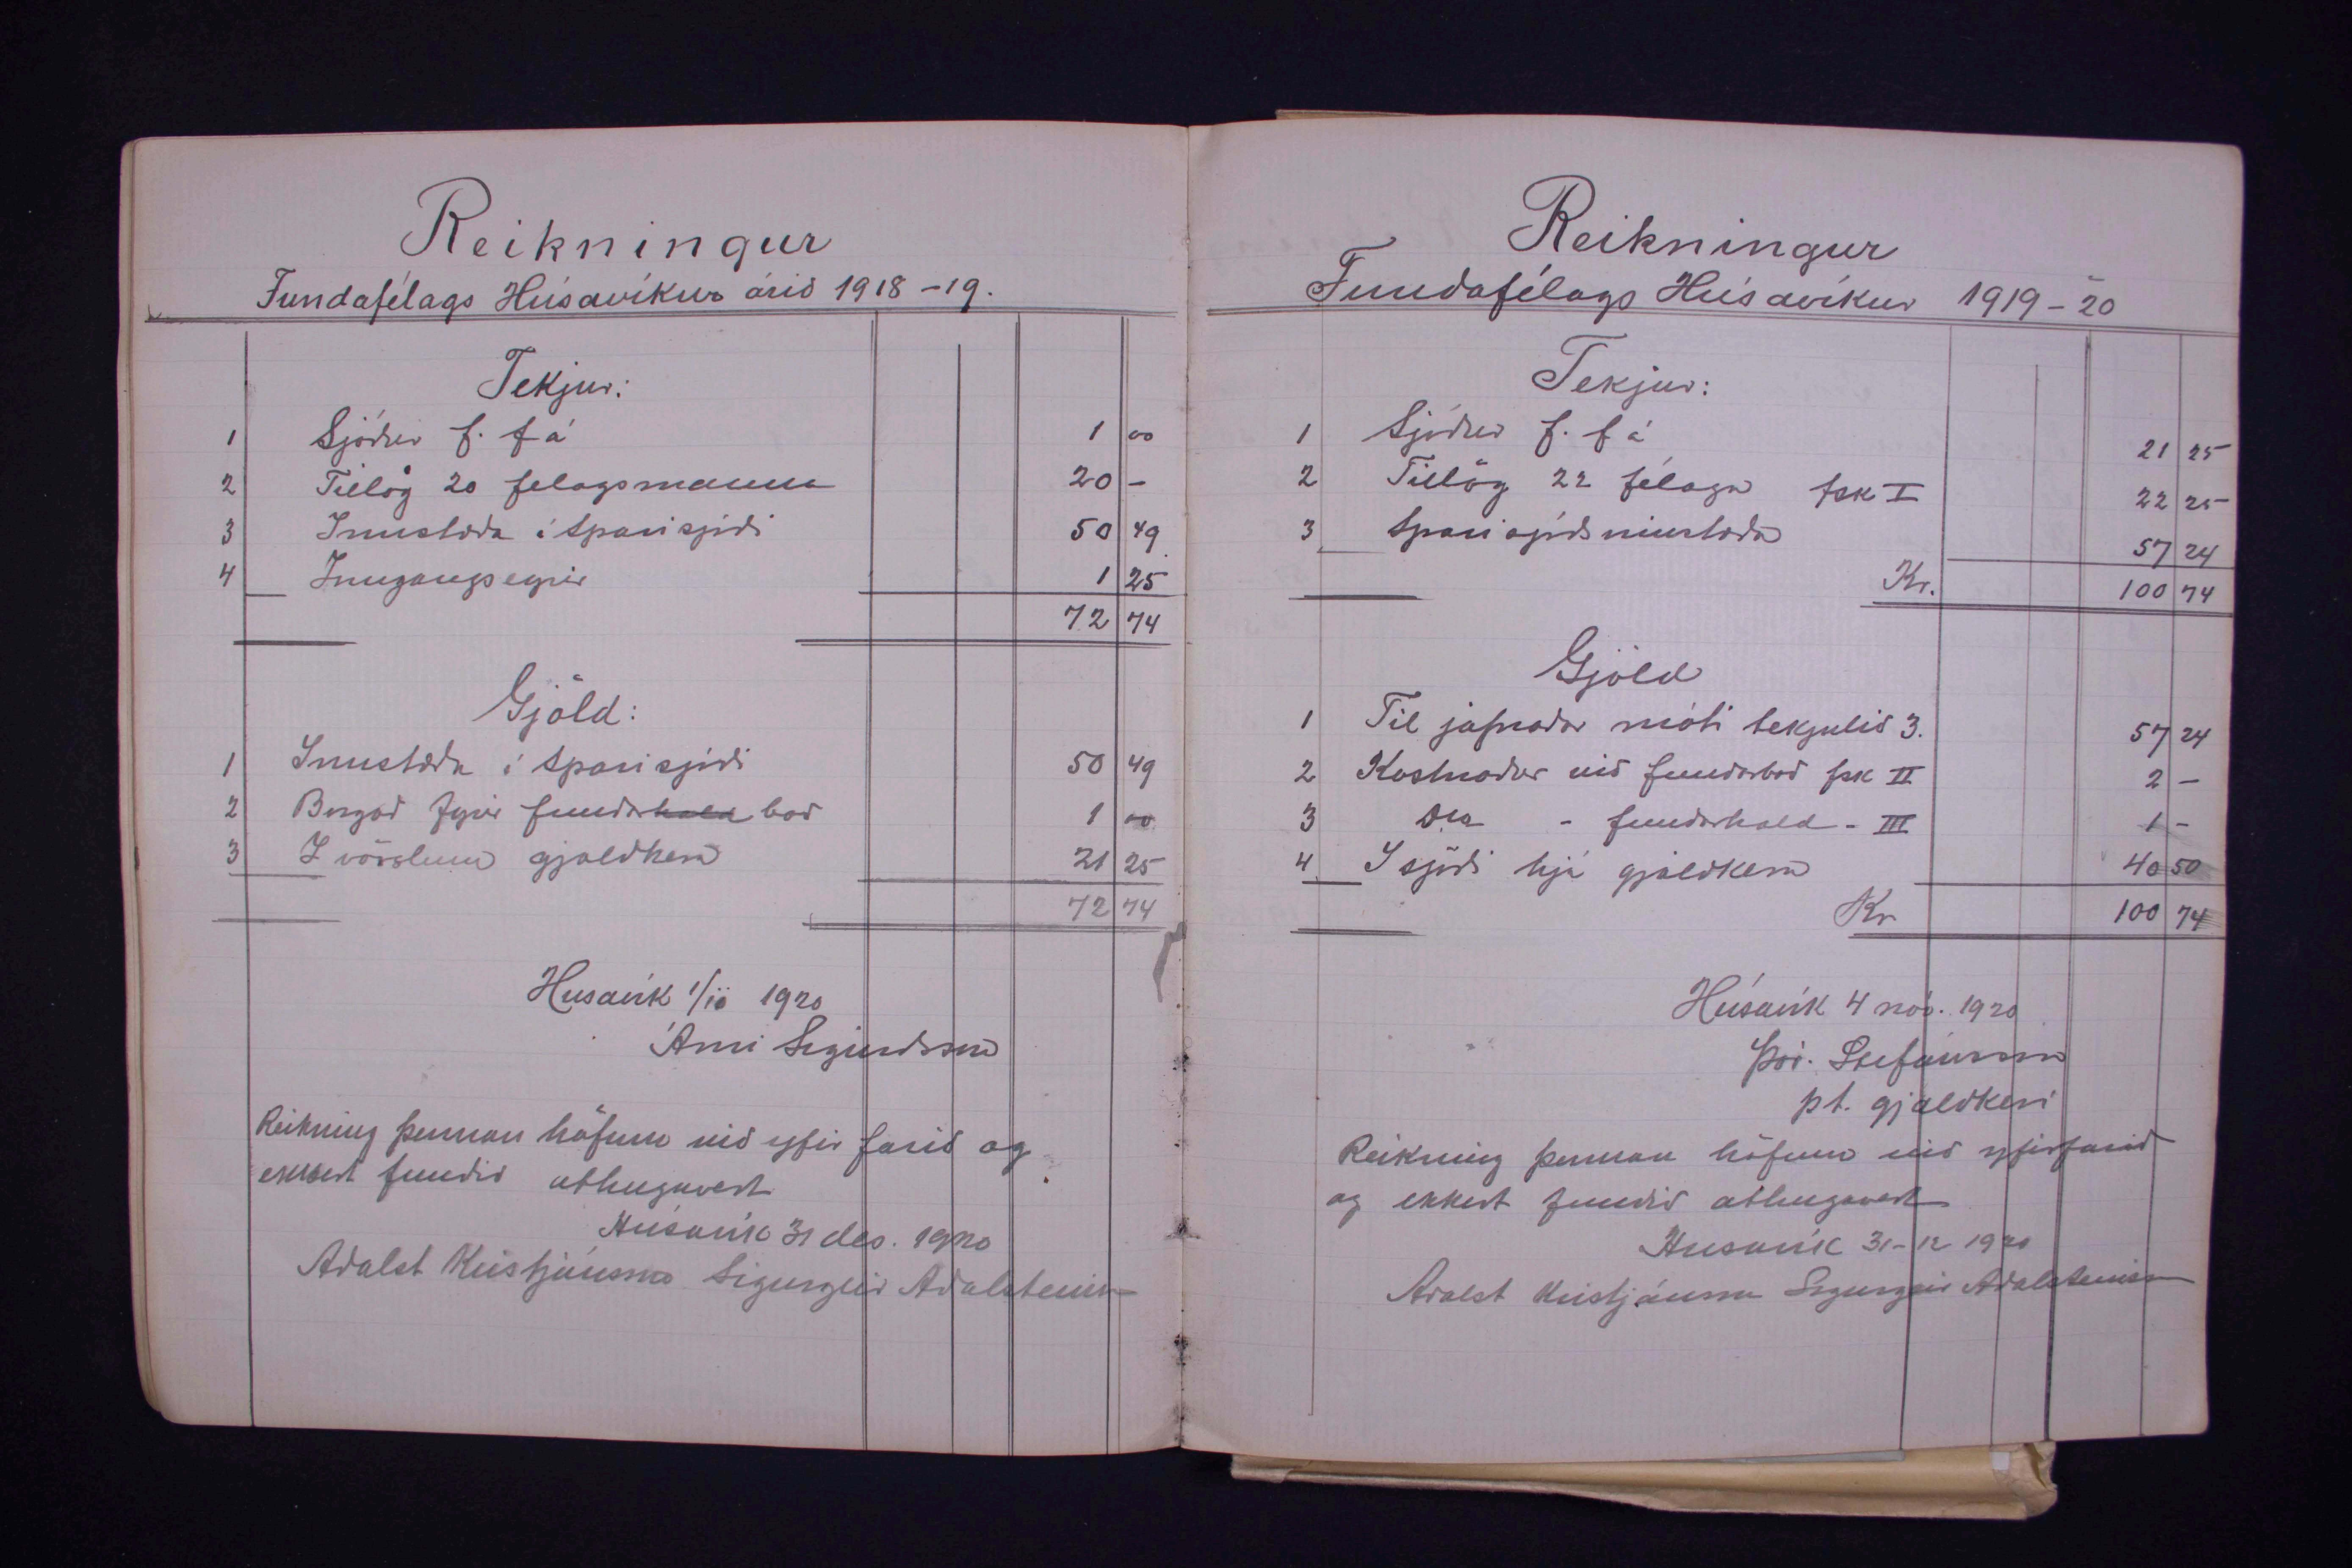 Reikningur
Fundafélags Húsavíkur árið 1918-19.
Tekjur:
1 Sjóður f. f á 1 00
2 Tillög 20 felagsmanna 20 -
3 Innstæða í Sparisjóði 50 49
4 Inngangseyrir 1 25
72 74
Gjöld:
1 Innstæða í Sparisjóði 50 49
2 Borgað fyrir fundarhald boð 1 00
3 Í vörslum gjaldkera 21 25
72 74
Húsavík 1/10 1920
Árni Sigurðsson
Reikning þennan höfum við yfir farið og
ekkert fundið athugavert
Húsavík 31 des. 1920
Aðalst Kristjánsson Sigurgeir Aðalsteinss
Reikningur
Fundafélags Húsavíkur 1919-20
Tekjur:
1 Sjóður f. f á 21 25
2 Tillög 22 félaga fsk I 22 25
3 Sparisjóðsinnstæða 57 24
Kr. 100 74
Gjöld
1 Til jafnaðar móti tekjulið 3. 57 24
2 Kostnaður við fundarboð fsk II 2 -
3 Do - fundarhald - III 1 -
4 Í sjóði hjá gjaldkera 40 50
Kr 100 74
Húsavík 4 nóv. 1920
Þór. Stefánsson
pt. gjaldkeri
Reikning þennan höfum við yfirfarið
og ekkert fundið athugavert
Húsavík 31-12 1920
Aðalst Kristjánsson Sigurgeir Aðalsteinsson